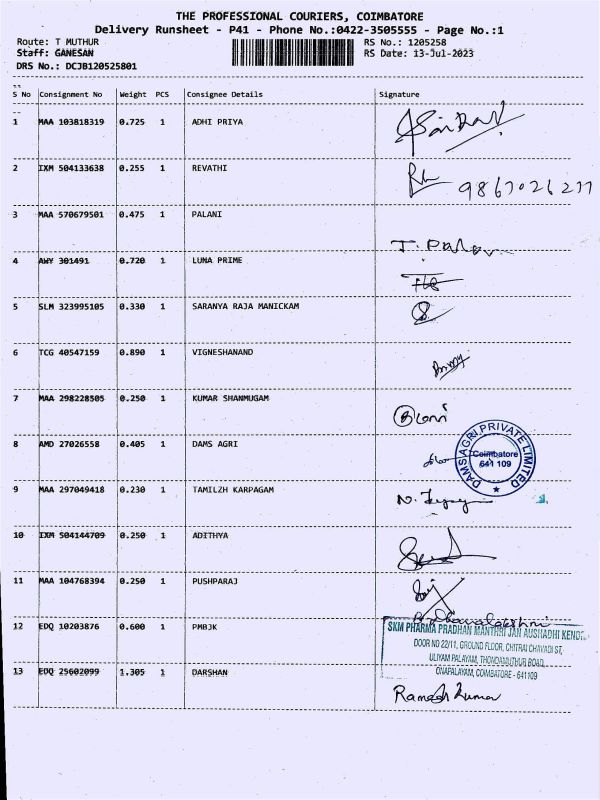 THE PROFESSIONAL COURIERS, COIMBATORE
Delivery Runsheet - P41 - Phone No.:0422-3505555 - Page No.:1
Route: T MUTHUR RS No.: 1205258
Staff: GANESAN RS Date: 13-Jul-2023
DRS No.: DCJB120525801
S No Consignment No Weight PCS Consignee Details Signature
1 MAA 103818319 0.725 1 ADHI PRIYA
2 IXM 504133638 0.255 1 REVATHI
9867026277
3 MAA 570679501 0.475 1 PALANI
4 AWY 301491 0.720 1 LUNA PRIME
5 SLM 323995105 0.330 1 SARANYA RAJA MANICKAM
6 TCG 40547159 0.890 1 VIGNESHANAND
7 MAA 298228505 0.250 1 KUMAR SHANMUGAM
8 AMD 27026558 0.405 1 DAMS AGRI
DAMSAGRI PRIVATE LIMITED
Coimbatore
641 109
9 MAA 297049418 0.230 1 TAMILZH KARPAGAM
10 IXM 504144709 0.250 1 ADITHYA
11 MAA 104768394 0.250 1 PUSHPARAJ
12 EDQ 10203876 0.600 1 PMBJK
SKM PHARMA PRADHAN MANTHRI JAN AUSHADHI KENDRA
DOOR NO 22/11, GROUND FLOOR, CHITRAI CHAVADI ST,
ULIYAM PALAYAM, THONDAMUTHUR ROAD,
ONAPALAYAM, COIMBATORE - 641109
13 EDQ 25602099 1.305 1 DARSHAN
Ramesh Kumar